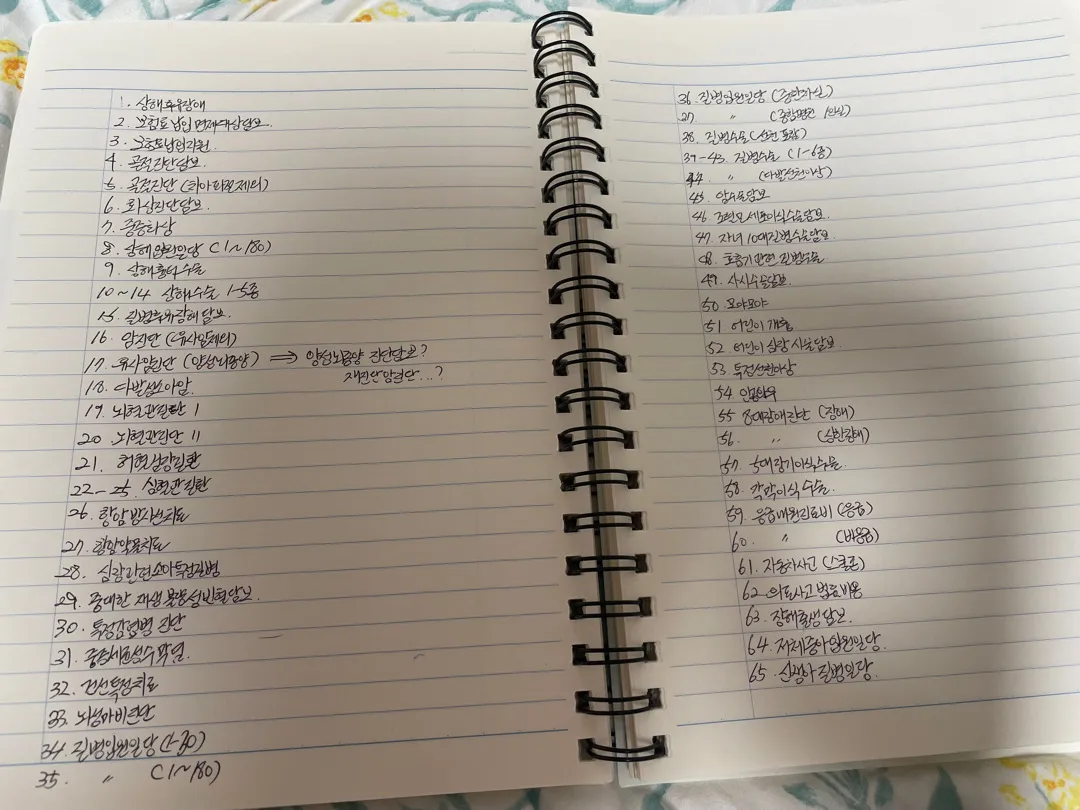 1. 상해후유장애
2. 보험료 납입 면제대상담보.
3. 보험료납입지원.
4. 골절진단담보.
5. 골절진단 (치아파절제외)
6. 화상진단담보.
7. 중증화상
8. 상해입원일당 (1~180)
9. 상해흉터수술
10~14 상해수술 1-5종
15. 질병후유장해담보.
16. 암진단 (유사암제외)
17. 유사암진단 (양성뇌종양) ⇒ 양성뇌종양 진단담보?
재진단암진단...?
18. 다발성소아암.
19. 뇌혈관질환 I
20. 뇌혈관진단 II
21. 허혈심장질환
22-25. 심혈관질환
26. 항암방사선치료
27. 항암약물치료
28. 심장관련소아특정질병
29. 중대한 재생불량성빈혈담보.
30. 특정감염병 진단
31. 중증세균성수막염.
32. 특정치료
33. 뇌성마비진단
34. 질병입원일당 (1-30)
35. 〃 (1~180)
36. 질병입원일당 (중환자실)
37. 〃 (종합병원 1인실)
38. 질병수술 (선천포함)
39-43. 질병수술 (1-6종)
44. 〃 (다발선천이상)
45. 암수술담보
46. 조혈모세포이식수술담보.
47. 자녀 10대질병수술담보.
48. 호흡기관련 질병수술
49. 시사수술담보.
50. 모야모야
51. 어린이 개흉
52. 어린이 심장시술담보.
53. 특정선천이상
54. 인공와우
55 8대장애진단 (장애)
56. 〃 (심한장애)
57. 5대장기이식수술.
58. 각막이식수술.
59. 응급내원진료비 (응급)
60. 〃 (비응급)
61. 자동차사고 (스쿨존)
62. 의료사고 법률비용
63. 장해출생담보.
64. 저체중아입원일당.
65. 신생아질병일당.